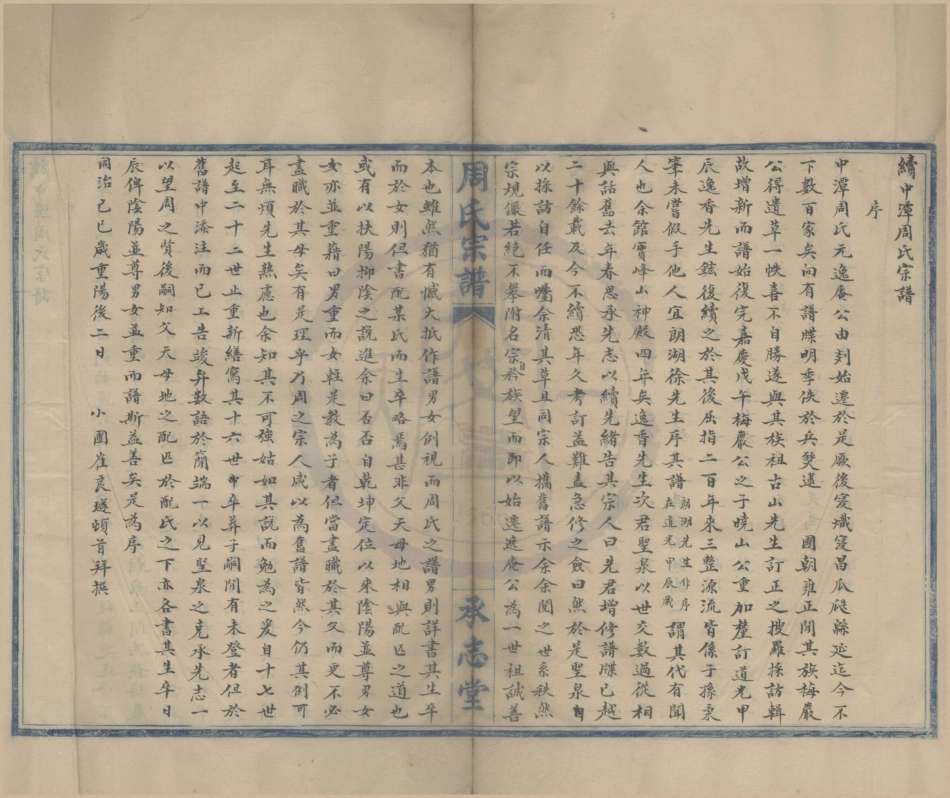 續中潭周氏宗譜
序
中潭周氏元逸庵公由剡始遷於是厥後寖熾寖昌瓜瓞綿延迄今不
下數百家矣向有譜牒明季佚於兵燹逮 國朝雍正間其族梅嚴
公得遺草一帙喜不自勝遂與其族祖古山先生訂正之搜羅採訪輯
故增新而譜始復完嘉慶戊午梅嚴公之子曉山公重加釐訂道光甲
辰逸香先生鉉後續之於其後屈指二百年來三整源流皆係子孫秉
筆未嘗假手他人宜朗湖徐先生序其譜朗湖先生作序在道光甲辰歲謂其代有聞
人也余館寶峰山神殿四年矣逸香先生次君聖泉以世交數過從相
與話舊去年春思承先志以續先緒告其宗人曰先君增修譜牒已越
二十餘載及今不續恐年久考訂益難盍急修之僉曰然於是聖泉自
以採訪自任而囑余清其草且同宗人攜舊譜示余余閱之世系秩然
宗規儼若絕不攀附名宗自矜族望而即以始遷逸庵公為一世祖誠善
周氏宗譜
承志堂
本也雖然猶有憾大抵作譜男女例視而周氏之譜男則詳書其生卒
而於女則但書配某氏而生卒略焉甚非父天母地相與配匹之道也
或有以扶陽抑陰之說進余曰否否自乾坤定位以來陰陽並尊男女
女亦並重藉曰男重而女輕是教為子者但當盡職於其父而更不必
盡職於其母矣有是理乎乃周之宗人咸以為舊譜皆然今仍其例可
耳無煩先生熱慮也余知其不可強姑如其說而勉為之爰自十七世
起至二十二世止重新繕寫其十六世卒葬子嗣間有未登者但於
舊譜中添注而已工告竣弁數語於簡端一以見聖泉之克承先志一
以望周之賢後嗣知父天母地之配匹於配氏之下亦各書其生卒日
辰俾陰陽並尊男女並重而譜斯益善矣是為序
同治己巳歲重陽後二日 小圃崔良璲頓首拜撰